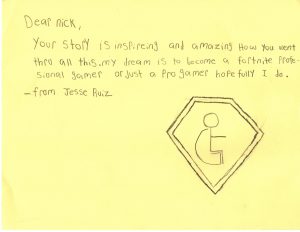 Dear nick,
Your story is inspireing and amazing How you went
thro all this.my dream is to become a fortnite profe-
ssional gamer or just a pro gamer hopefully I do.
-from Jesse Ruiz